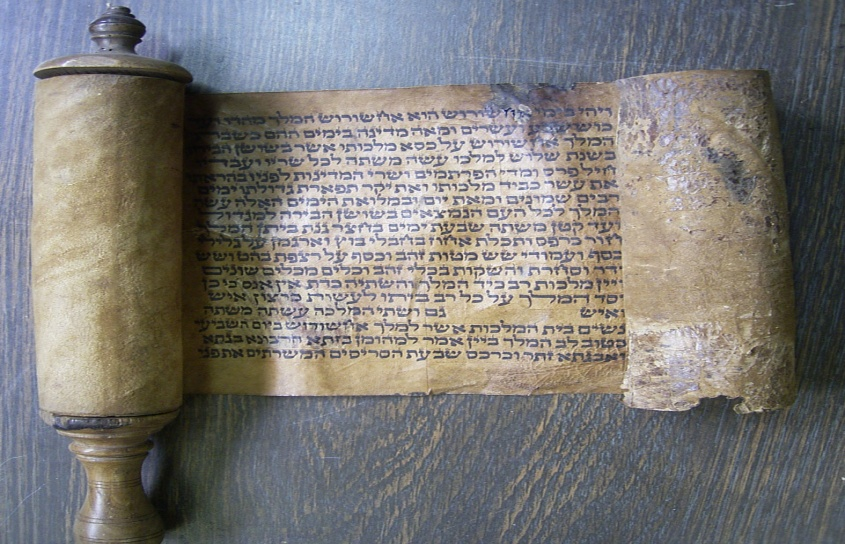 ויהי אחשורוש הוא אחשורוש המלך מהדו
כוש ועשרים ומאה מדינה בימים ההם כשבת
המלך על כסא מלכותו אשר בשושן
בשנת שלוש למלכו עשה משתה לכל שריו ועבדיו
חיל פרס ומדי הפרתמים ושרי המדינות לפניו בהראתו
את עשר כביד מלכותו ואת יקר תפארת גדולתו ימים
רבים שמונים ומאת יום ובמלואת הימים האלה עשה
המלך לכל העם הנמצאים בשושן הבירה למגדול
ועד קטן משתה שבעת ימים בחצר גנת ביתן המלך
חור כרפס ותכלת אחוז בחבלי בוץ וארגמן על גלילי
כסף ועמודי שש מטות זהב וכסף על רצפת בהט ושש
ודר וסחרת והשקות בכלי זהב וכלים מכלים שונים
ויין מלכות רב כיד המלך והשתיה כדת אין אנס כי כן
יסד המלך על כל רב ביתו לעשות כרצון איש
ואיש גם ושתי המלכה עשתה משתה
נשים בית המלכות אשר למלך אחשורוש ביום השביעי
כטוב לב המלך ביין אמר למהומן בזתא חרבונא בגתא
ואבגתא זתר וכרכס שבעת הסריסים המשרתים את פני